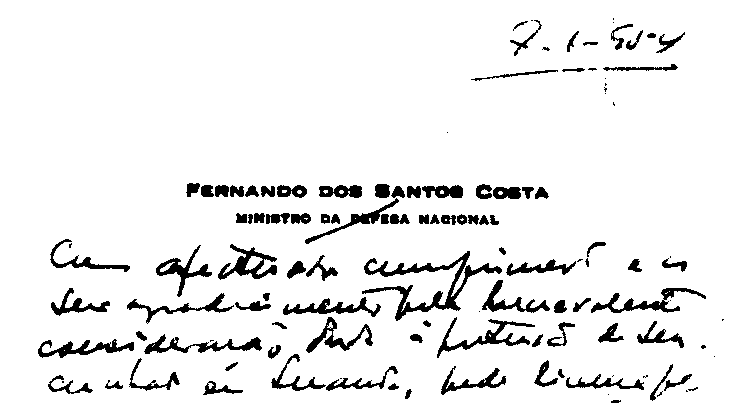 7-1-954
FERNANDO DOS SANTOS COSTA
MINISTRO DA DEFESA NACIONAL
Com afectuosos cumprimentos e os
seus agradecimentos pela benevolente
consideração dada à pretensão de seu
cunhado em Luanda, pede licença pa